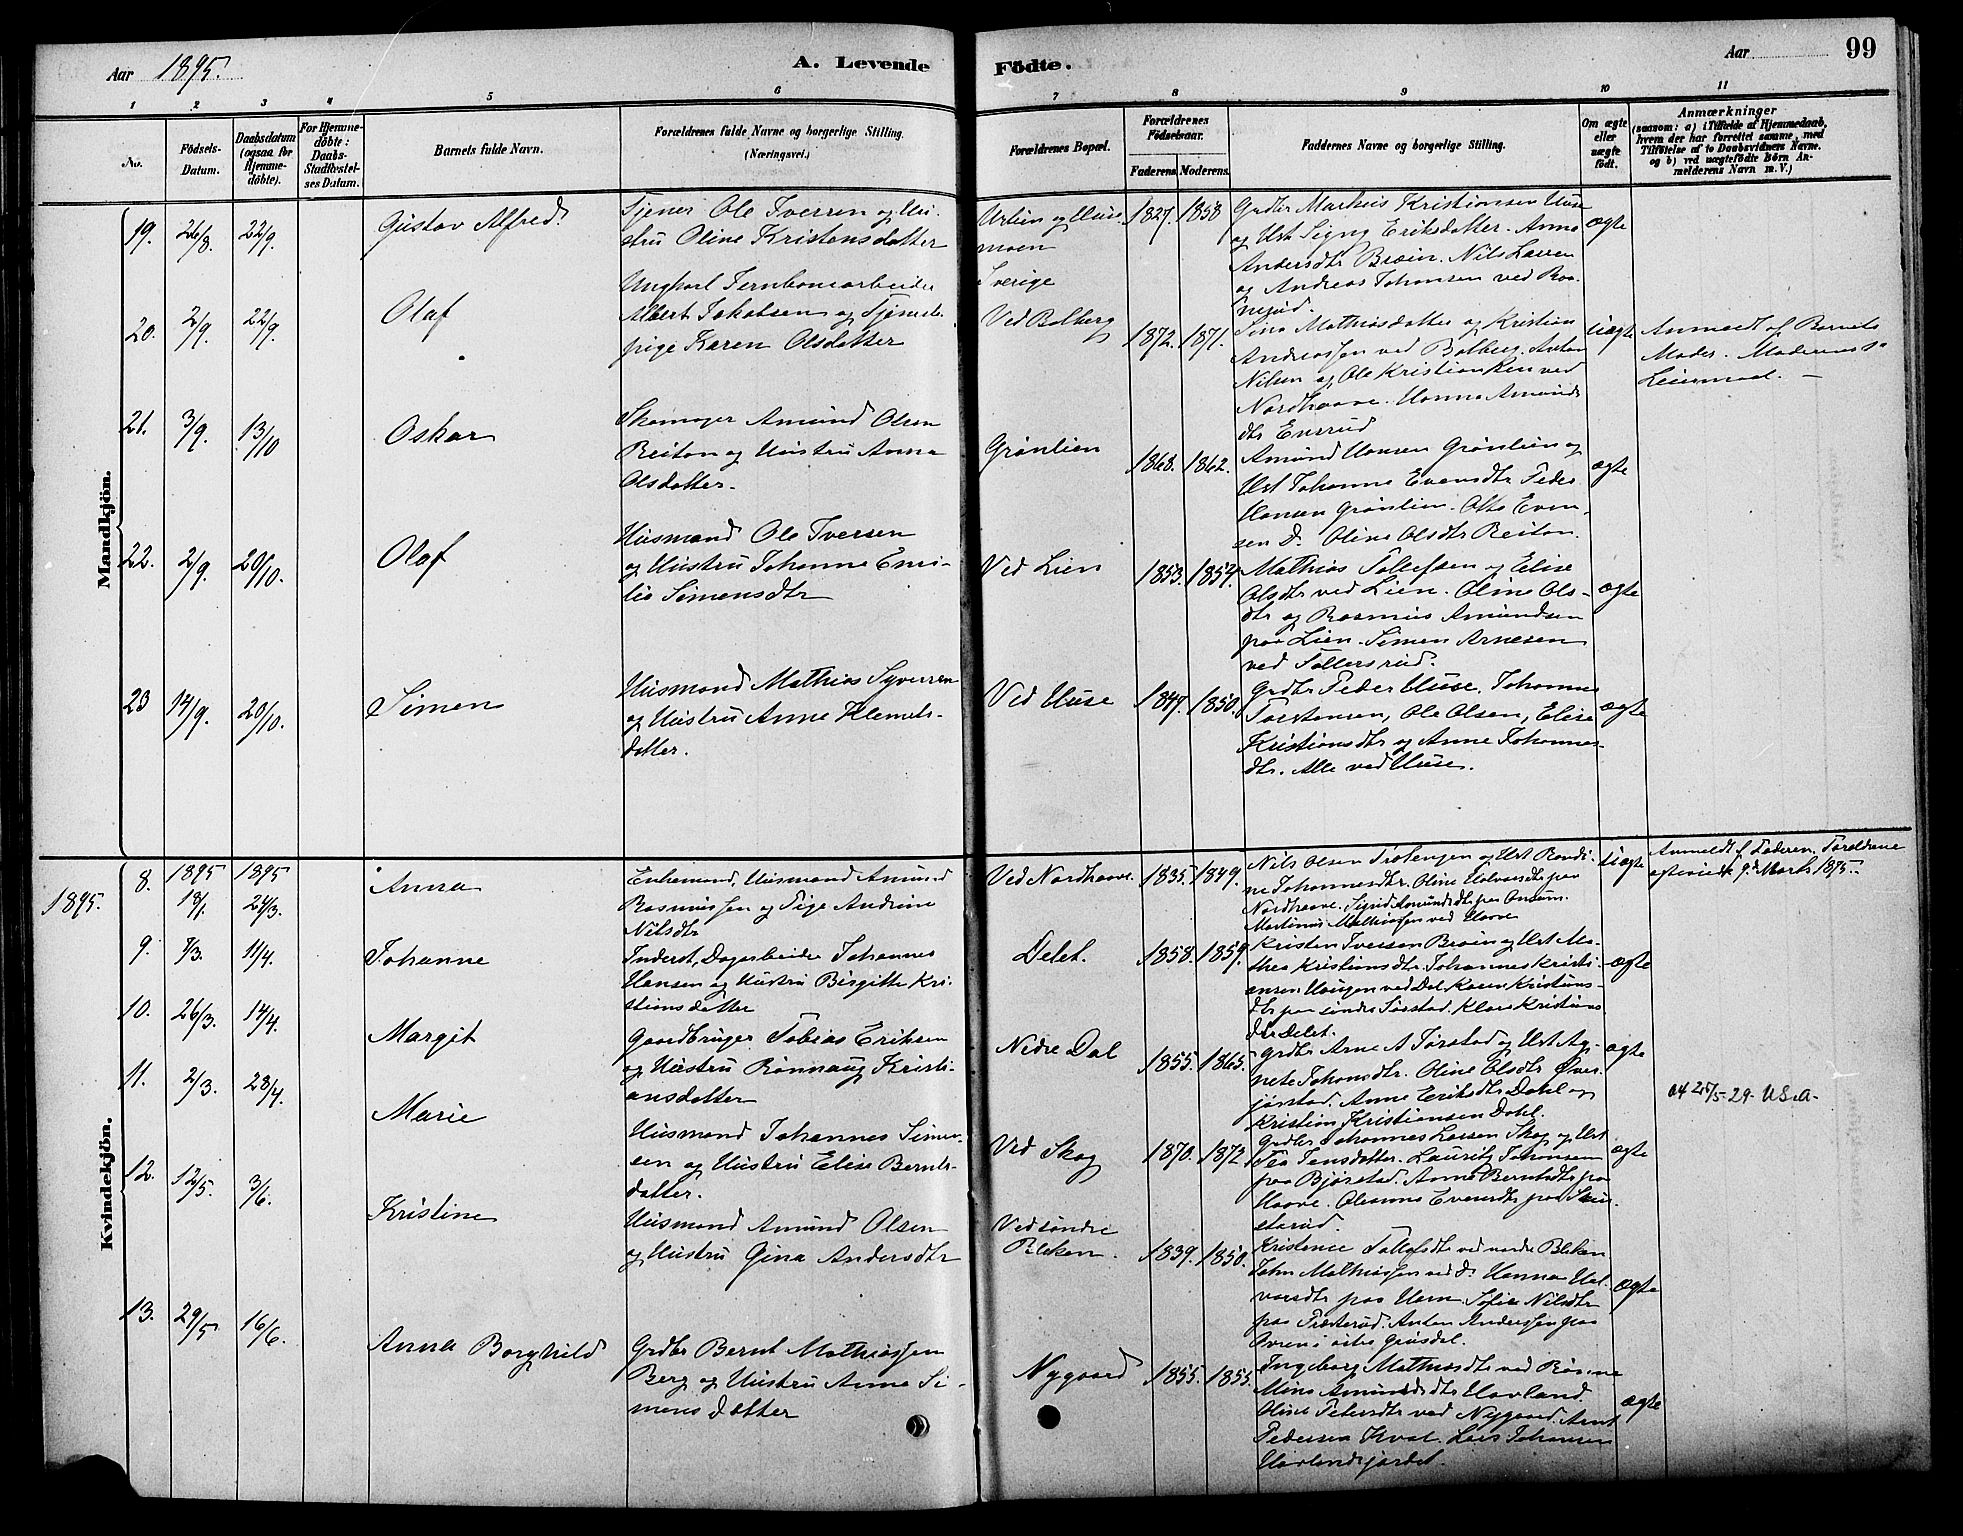 Aar 1895.
A. Levende
Födte.
Aar
99
1
2
3
4
5
6
7
8
9
10
11
No.
Födsels-
Datum.
Daabsdatum
(ogsaa for
Hjemme-
döbte).
For Hjemme-
döbte:
Daabs-
Stadfæstel-
ses Datum.
Barnets fulde Navn.
Forældrenes fulde Navne og borgerlige Stilling.
(Næringsvei.)
Forældrenes Bopæl.
Forældrenes
Födselsaar.
Faderens
Moderens.
Faddernes Navne og borgerlige Stilling.
Om ægte
eller
uægte
födt.
Anmærkninger
(saasom: a) i Tilfælde af Hjemmedaab,
hvem der har forrettet samme, med
Tilföielse af to Daabsvidners Navne.
og b) ved uægtefödte Börn An-
melderens Navn m. V.)
Mandkjön.
19.
26/8.
22/9.
Gustav Alfred.
Tjener Ole Iversen og Hu-
stru Oline Kristensdatter
Huse
moen
Sverige
1827.
1858
Grdbr Markus Kristiansen Huse
og Hst Signe Eriksdatter. Anne
Andersdtr Bræin. Nils Larsen
og Andreas Johansen ved
ægte
20.
2/9.
22/9.
Olaf
Ungkarl Jernbanearbeider
Albert Jakobsen og Tjeneste-
pige Karen Olsdatter
Ved Bolberg
1872.
1871.
Mathiasdatter og Kristian
Andreassen ved Bolberg. Anton
Nilsen og Ole Kristiansen ved
Nordhaave. Hanna Amunds
dtr Ensrud
uægte
Anmeldt af Barnets
Moder. Moderens 1ste
Leiermaal. –
21.
3/9.
13/10
Oskar
Skomager Amund Olsen
Reiton og Hustru Anna
Olsdatter.
Grønlien
1868.
1862.
Amund Hansen Grønlien og
Hst Johanne Evensdtr Peder
Hansen Grønlien. Otto Even-
sen Do. Oline Olsdtr Reiton.
ægte
22.
2/9.
20/10.
Olaf
Husmand Ole Iversen
og Hustru Johanne Emi-
lie Simensdtr
Ved Lien
1853.
1854.
Mathias Tollefsen og Elise
Olsdtr ved Lien. Oline Ols-
dtr og Rasmus Amundsen
paa Lien. Simen Arnesen
ved Tollersrud.
ægte
23
14/9.
20/10.
Simen
Husmand Mathias Syversen
og Hustru Anne Klemets-
datter.
Ved Huse
1847.
1850.
Grdbr Peder Huse. Johannes
Torstensen, Ole Olsen, Elise
Kristiansdtr og Anne Johannes-
dtr. Alle ved Huse.
ægte
1895.
Kvindekjön.
8.
1895
18/1.
1895
24/3.
Anna
Enkemand, Husmand Amund
Rasmussen og Pige Andrine
Nilsdtr
Ved Nordhaave
1835.
1849.
Nils Olsen og Hst Randi-
ne Johannesdtr. Oline Halvorsdtr paa
Nordhaave. Sigrid Amundsdtr paa
Martinus Mathiassen ved Haave
uægte
Anmeldt af Faderen. Forældrene
ægteviede 9de Marts 1895.
9.
7/3.
11/4.
Johanne
Inderst, Dagarbeider Johannes
Hansen og Hustru Birgitte Kri-
stiansdatter
Delet.
1858.
1859.
Kristen Iversen Bræin og Hst Ma-
thea Kristiansdtr. Johannes Kristi-
ansen Haugen ved Dal. Karen Kristians-
dtr paa søndre Jørstad. Klara Kristians
dtr Delet.
ægte
10.
26/3.
14/4.
Margit
Gaardbruger Tobias Eriksen
og Hustru Rønnaug Kristi-
ansdatter
Nedre Dal
1855.
1865.
Grdbr Arne A Jørstad og Hst Ag-
nete Johansdtr. Oline Olsdtr Øver-
jørstad. Anne Eriksdtr Dahl og
Kristian Kristiansen Dahl.
ægte
11.
2/3.
28/4.
Marie
Husmand Johannes Simen-
sen og Hustru Elise Bernts-
datter.
Ved Skog
1870.
1872
Grdbr Johannes Larsen Skog og Hst
Jensdatter. Laurits Johansen
paa Bjørstad. Anne Berntsdtr paa
Haave. Oleanna Evensdtr paa
ægte
04 25/5-29- U.S.A-
12.
12/5.
3/6.
Kristine
Husmand Amund Olsen
og Hustru Gina Andersdtr
Ved søndre
Bleken.
1839.
1850.
Kristence Tollefsdtr ved nordre Bleken
John Mathiassen ved Do. Hanna Hal-
vorsdtr paa Ham. Sofie Nilsdtr
paa Præsterud. Anton Andersen paa
ægte
13.
29/5
16/6.
Anna Borghild
Grdbr Bernt Mathiassen
Berg og Hustru Anne Si-
mens Datter
Nygaard
1855.
1855.
Ingeborg Mathiasdtr ved
Mina Amundsdtr Havland.
Oline Petersdtr ved Nygaard. Arnt
Pedersen Kval. Lars Johansen
Havlandsjordet.
ægte